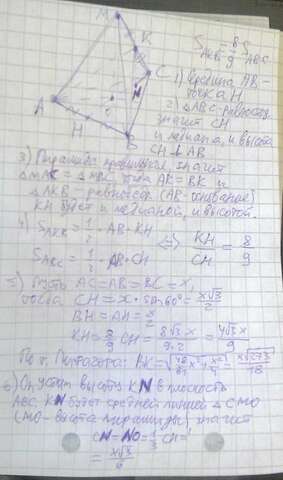 M
K
C
N
A
H
B
S_AKB = 8/9 S_ABC
1) Середина AB -
точка H.
2) △ABC - равностор
значит CH
и медиана, и высота
CH ⊥ AB
3) Пирамида правильная, значит
△MAC = △MBC, тогда AK = BK и
△AKB - равнобед (AB - основание)
KH будет и медианой, и высотой.
4) S_AKB = 1/2 · AB · KH
S_ABC = 1/2 AB · CH
⇒ KH/CH = 8/9
5) Пусть AC = AB = BC = x,
тогда CH = x · sin 60° = x√3/2
BH = AH = x/2
KH = 8/9 CH = 8√3 x/9·2 = 4√3 x/9
По т. Пифагора: BK =
6) Опустим высоту KN в плоскость
ABC, KN будет средней линией △CMO
(MO - высота пирамиды), значит
CN = NO = 1/3 CH =
= x√3/6